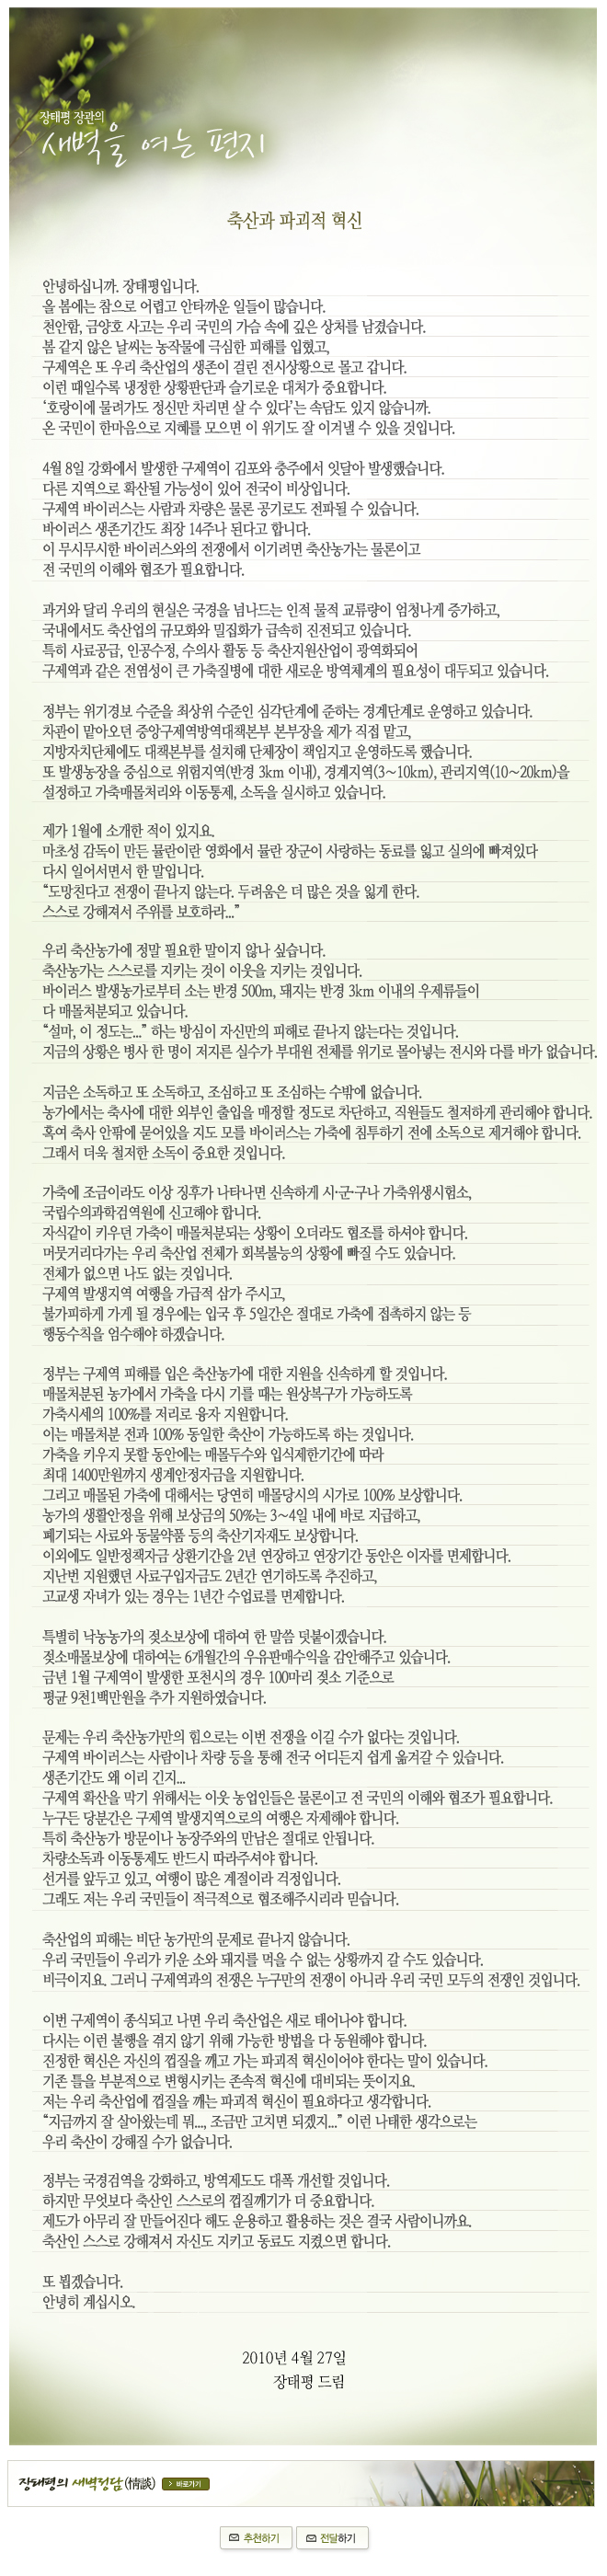 장태평 장관의
새벽을 여는 편지
축산과 파괴적 혁신
안녕하십니까. 장태평입니다.
올 봄에는 참으로 어렵고 안타까운 일들이 많습니다.
천안함, 금양호 사고는 우리 국민의 가슴 속에 깊은 상처를 남겼습니다.
봄 같지 않은 날씨는 농작물에 극심한 피해를 입혔고,
구제역은 또 우리 축산업의 생존이 걸린 전시상황으로 몰고 갑니다.
이런 때일수록 냉정한 상황판단과 슬기로운 대처가 중요합니다.
‘호랑이에 물려가도 정신만 차리면 살 수 있다’는 속담도 있지 않습니까.
온 국민이 한마음으로 지혜를 모으면 이 위기도 잘 이겨낼 수 있을 것입니다.
4월 8일 강화에서 발생한 구제역이 김포와 충주에서 잇달아 발생했습니다.
다른 지역으로 확산될 가능성이 있어 전국이 비상입니다.
구제역 바이러스는 사람과 차량은 물론 공기로도 전파될 수 있습니다.
바이러스 생존기간도 최장 14주나 된다고 합니다.
이 무시무시한 바이러스와의 전쟁에서 이기려면 축산농가는 물론이고
전 국민의 이해와 협조가 필요합니다.
과거와 달리 우리의 현실은 국경을 넘나드는 인적 물적 교류량이 엄청나게 증가하고,
국내에서도 축산업의 규모화와 밀집화가 급속히 진전되고 있습니다.
특히 사료공급, 인공수정, 수의사 활동 등 축산지원산업이 광역화되어
구제역과 같은 전염성이 큰 가축질병에 대한 새로운 방역체계의 필요성이 대두되고 있습니다.
정부는 위기경보 수준을 최상위 수준인 심각단계에 준하는 경계단계로 운영하고 있습니다.
차관이 맡아오던 중앙구제역방역대책본부 본부장을 제가 직접 맡고,
지방자치단체에도 대책본부를 설치해 단체장이 책임지고 운영하도록 했습니다.
또 발생농장을 중심으로 위험지역(반경 3km 이내), 경계지역(3~10km), 관리지역(10~20km)을
설정하고 가축매몰처리와 이동통제, 소독을 실시하고 있습니다.
제가 1월에 소개한 적이 있지요.
마초성 감독이 만든 뮬란이란 영화에서 뮬란 장군이 사랑하는 동료를 잃고 실의에 빠져있다
다시 일어서면서 한 말입니다.
“도망친다고 전쟁이 끝나지 않는다. 두려움은 더 많은 것을 잃게 한다.
스스로 강해져서 주위를 보호하라...”
우리 축산농가에 정말 필요한 말이지 않나 싶습니다.
축산농가는 스스로를 지키는 것이 이웃을 지키는 것입니다.
바이러스 발생농가로부터 소는 반경 500m, 돼지는 반경 3km 이내의 우제류들이
다 매몰처분되고 있습니다.
“설마, 이 정도는...” 하는 방심이 자신만의 피해로 끝나지 않는다는 것입니다.
지금의 상황은 병사 한 명이 저지른 실수가 부대원 전체를 위기로 몰아넣는 전시와 다를 바가 없습니다.
지금은 소독하고 또 소독하고, 조심하고 또 조심하는 수밖에 없습니다.
농가에서는 축사에 대한 외부인 출입을 매정할 정도로 차단하고, 직원들도 철저하게 관리해야 합니다.
혹여 축사 안팎에 묻어있을 지도 모를 바이러스는 가축에 침투하기 전에 소독으로 제거해야 합니다.
그래서 더욱 철저한 소독이 중요한 것입니다.
가축에 조금이라도 이상 징후가 나타나면 신속하게 시·군·구나 가축위생시험소,
국립수의과학검역원에 신고해야 합니다.
자식같이 키우던 가축이 매몰처분되는 상황이 오더라도 협조를 하셔야 합니다.
머뭇거리다가는 우리 축산업 전체가 회복불능의 상황에 빠질 수도 있습니다.
전체가 없으면 나도 없는 것입니다.
구제역 발생지역 여행을 가급적 삼가 주시고,
불가피하게 가게 될 경우에는 입국 후 5일간은 절대로 가축에 접촉하지 않는 등
행동수칙을 엄수해야 하겠습니다.
정부는 구제역 피해를 입은 축산농가에 대한 지원을 신속하게 할 것입니다.
매몰처분된 농가에서 가축을 다시 기를 때는 원상복구가 가능하도록
가축시세의 100%를 저리로 융자 지원합니다.
이는 매몰처분 전과 100% 동일한 축산이 가능하도록 하는 것입니다.
가축을 키우지 못할 동안에는 매몰두수와 입식제한기간에 따라
최대 1400만원까지 생계안정자금을 지원합니다.
그리고 매몰된 가축에 대해서는 당연히 매몰당시의 시가로 100% 보상합니다.
농가의 생활안정을 위해 보상금의 50%는 3~4일 내에 바로 지급하고,
폐기되는 사료와 동물약품 등의 축산기자재도 보상합니다.
이외에도 일반정책자금 상환기간을 2년 연장하고 연장기간 동안은 이자를 면제합니다.
지난번 지원했던 사료구입자금도 2년간 연기하도록 추진하고,
고교생 자녀가 있는 경우는 1년간 수업료를 면제합니다.
특별히 낙농농가의 젖소보상에 대하여 한 말씀 덧붙이겠습니다.
젖소매몰보상에 대하여는 6개월간의 우유판매수익을 감안해주고 있습니다.
금년 1월 구제역이 발생한 포천시의 경우 100마리 젖소 기준으로
평균 9천1백만원을 추가 지원하였습니다.
문제는 우리 축산농가만의 힘으로는 이번 전쟁을 이길 수가 없다는 것입니다.
구제역 바이러스는 사람이나 차량 등을 통해 전국 어디든지 쉽게 옮겨갈 수 있습니다.
생존기간도 왜 이리 긴지...
구제역 확산을 막기 위해서는 이웃 농업인들은 물론이고 전 국민의 이해와 협조가 필요합니다.
누구든 당분간은 구제역 발생지역으로의 여행은 자제해야 합니다.
특히 축산농가 방문이나 농장주와의 만남은 절대로 안됩니다.
차량소독과 이동통제도 반드시 따라주셔야 합니다.
선거를 앞두고 있고, 여행이 많은 계절이라 걱정입니다.
그래도 저는 우리 국민들이 적극적으로 협조해주시리라 믿습니다.
축산업의 피해는 비단 농가만의 문제로 끝나지 않습니다.
우리 국민들이 우리가 키운 소와 돼지를 먹을 수 없는 상황까지 갈 수도 있습니다.
비극이지요. 그러니 구제역과의 전쟁은 누구만의 전쟁이 아니라 우리 국민 모두의 전쟁인 것입니다.
이번 구제역이 종식되고 나면 우리 축산업은 새로 태어나야 합니다.
다시는 이런 불행을 겪지 않기 위해 가능한 방법을 다 동원해야 합니다.
진정한 혁신은 자신의 껍질을 깨고 가는 파괴적 혁신이어야 한다는 말이 있습니다.
기존 틀을 부분적으로 변형시키는 존속적 혁신에 대비되는 뜻이지요.
저는 우리 축산업에 껍질을 깨는 파괴적 혁신이 필요하다고 생각합니다.
“지금까지 잘 살아왔는데 뭐..., 조금만 고치면 되겠지...” 이런 나태한 생각으로는
우리 축산이 강해질 수가 없습니다.
정부는 국경검역을 강화하고, 방역제도도 대폭 개선할 것입니다.
하지만 무엇보다 축산인 스스로의 껍질깨기가 더 중요합니다.
제도가 아무리 잘 만들어진다 해도 운용하고 활용하는 것은 결국 사람이니까요.
축산인 스스로 강해져서 자신도 지키고 동료도 지켰으면 합니다.
또 뵙겠습니다.
안녕히 계십시오.
2010년 4월 27일
장태평 드림
장태평의 새벽정담(情談) 바로가기
추천하기 전달하기